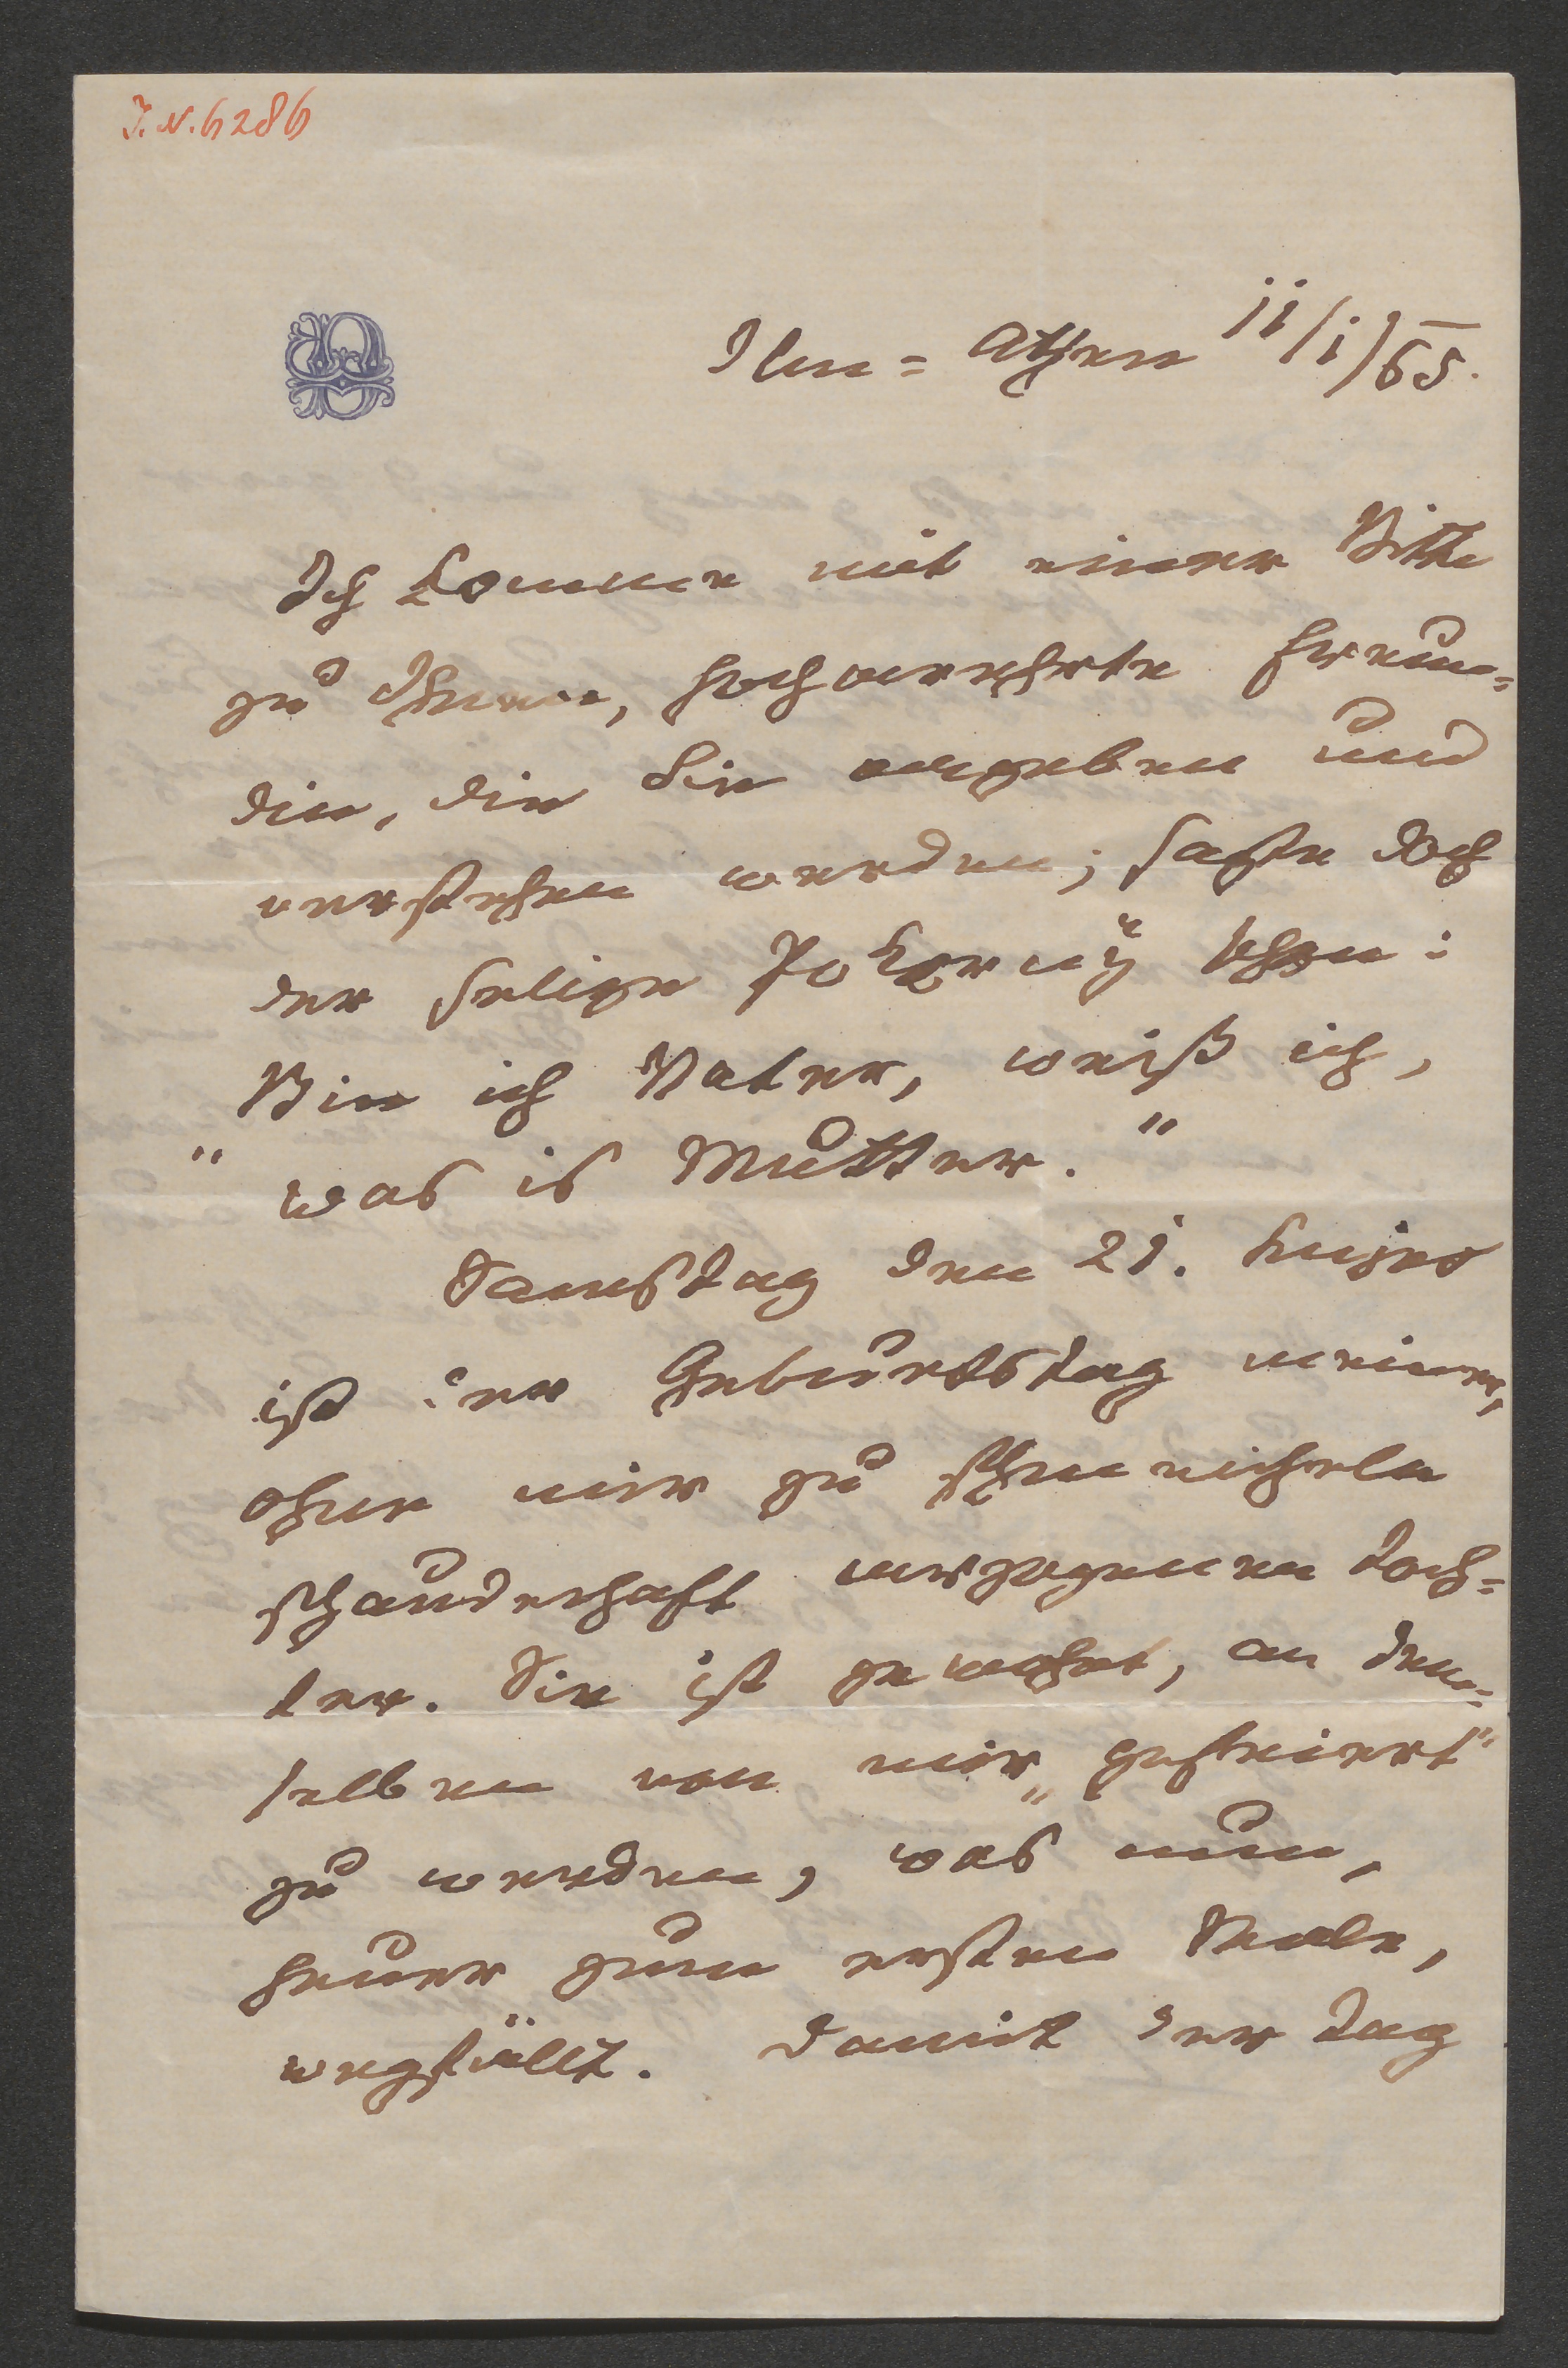 I. N. 6286
Ilm=Athen 11/1/65.
Ich komme mit einer Bitte
zu Ihnen, hochverehrte Freun=
din, die Sie vergeben und
verstehen werden; sagte doch
der selige Pokorný schon:
Bin ich Vater, weiß ich,
" was is Mutter."
Samstag den 21. hujus
ist der Geburtstag meiner,
ohne mir zu schmeicheln
schauderhaft verzogenen Toch=
ter. Sie ist gewohnt, an dem=
selben von mir „gefeiert"
zu werden, was nun,
heuer zum ersten Male,
wegfällt. Damit der Tag